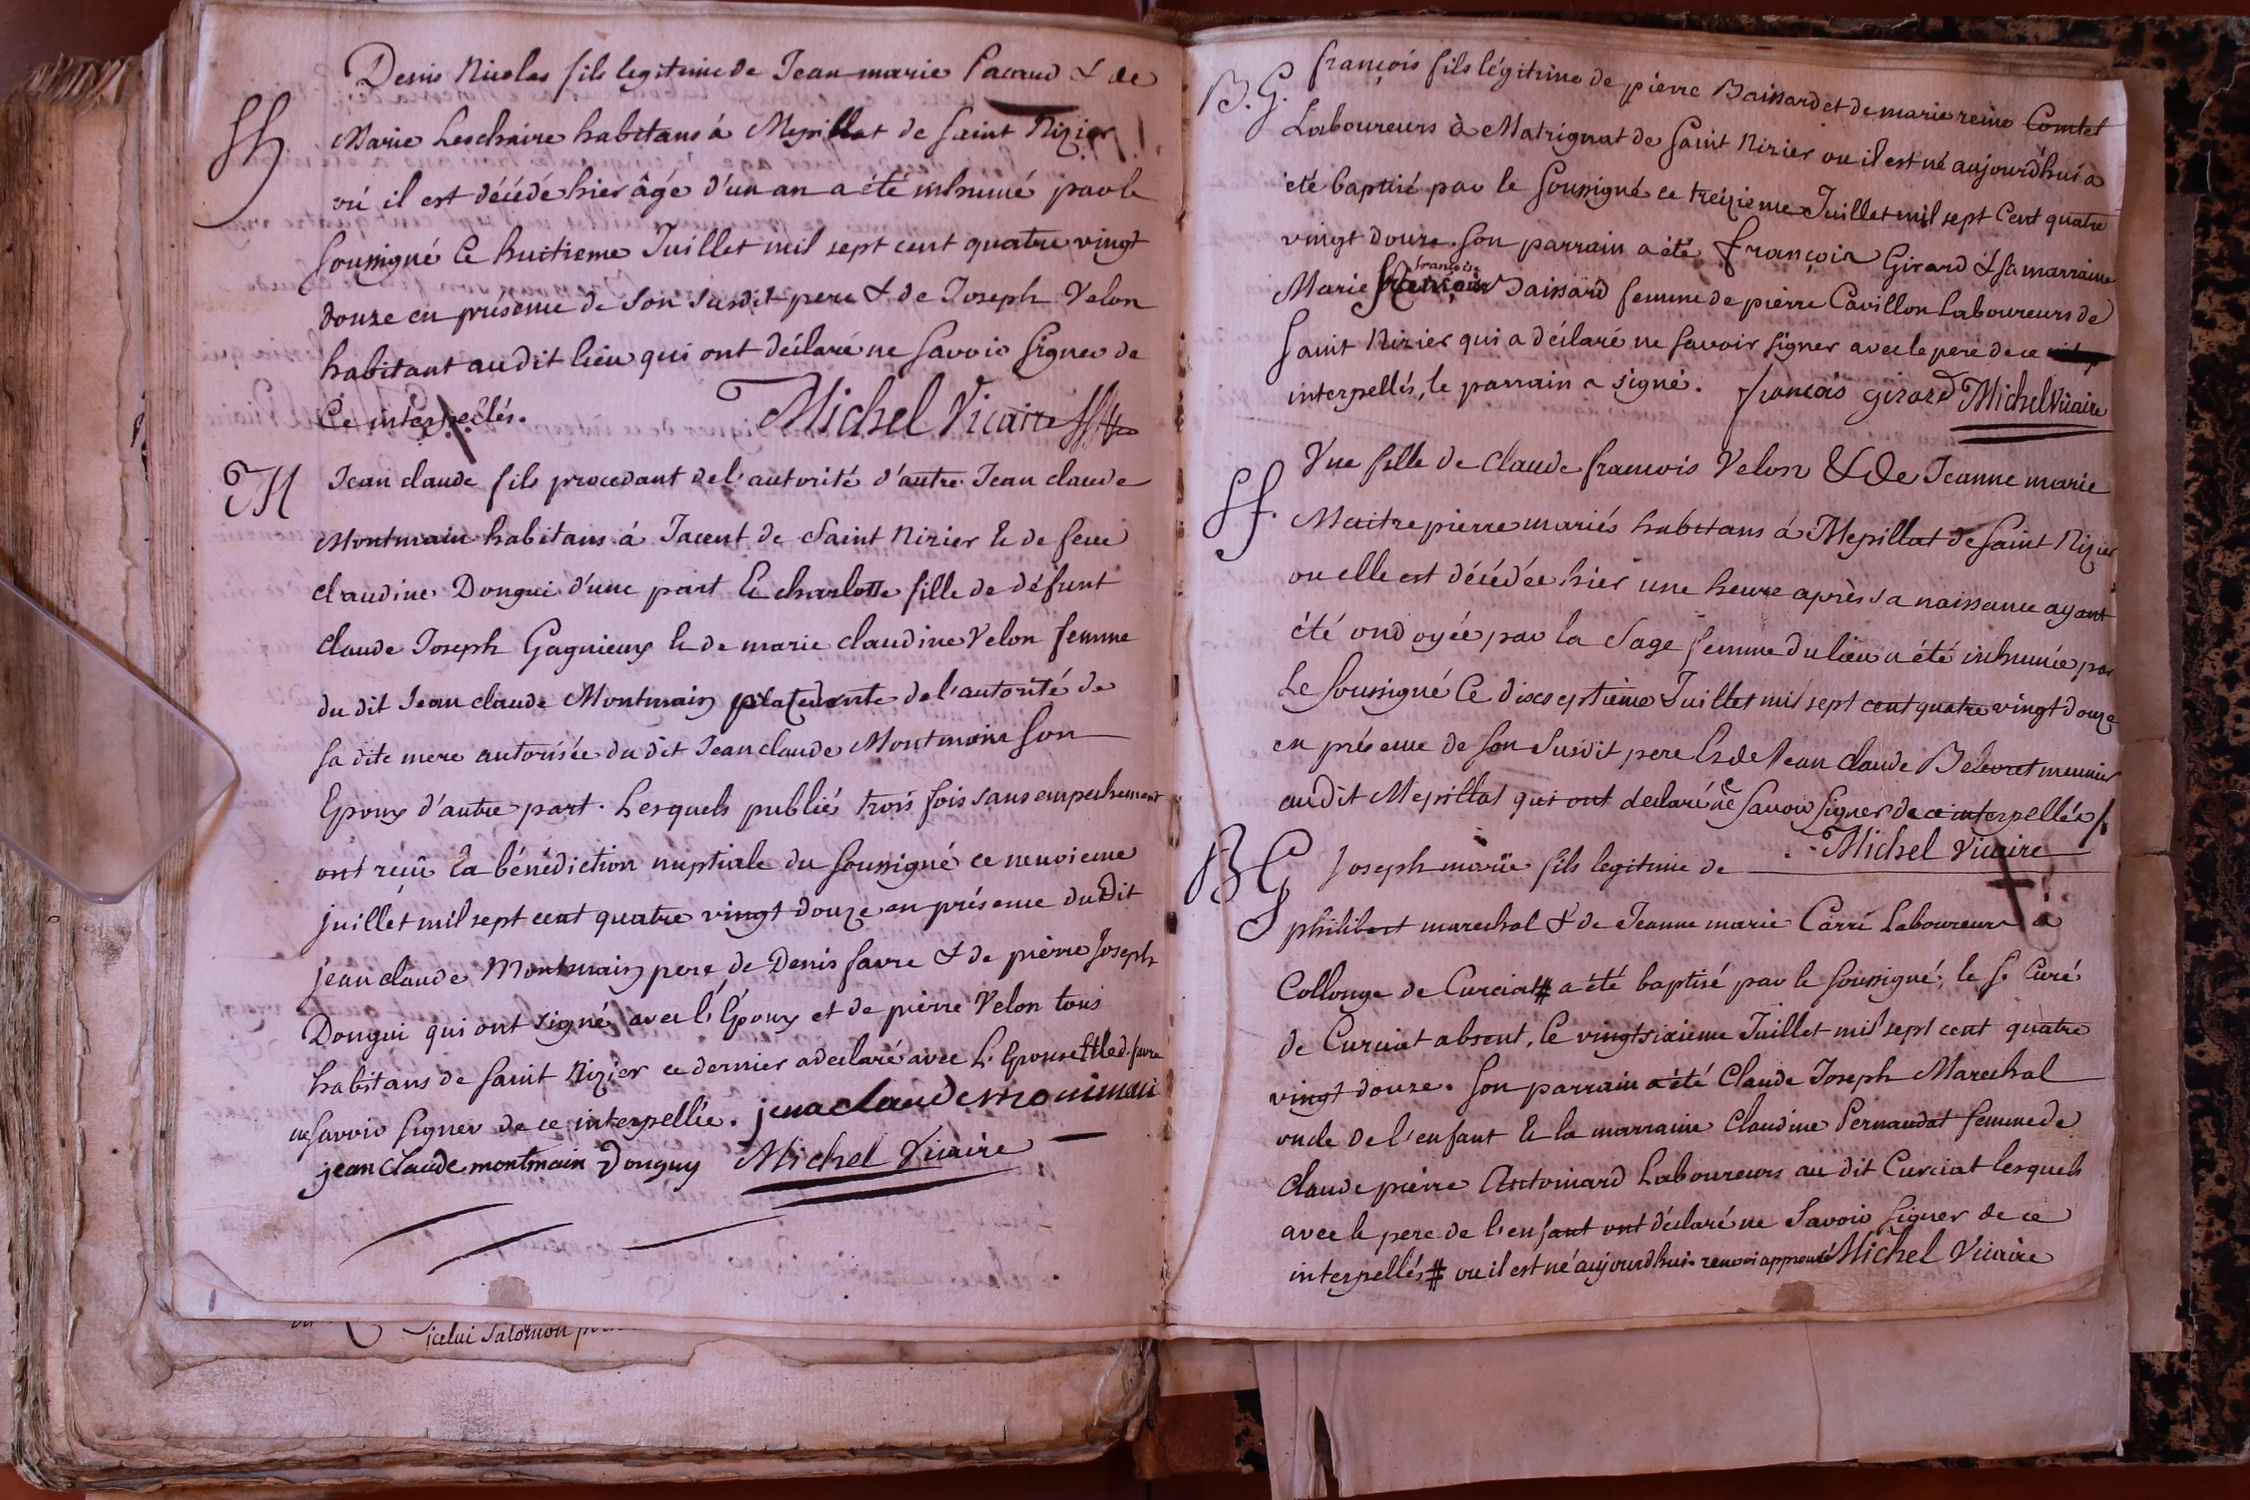 Denis Nicolas fils legitime de Jean marie Pacaud & de
SH Marie Leschaire habitans á Mepillat de Saint Nizier
oú il est décédé hier âgé d'un an a été inhumé par le
soussigné ce huitieme Juillet mil sept cent quatre vingt
douze en présence de son susdit pere & de Joseph Velon
habitant audit lieu qui ont déclaré ne savoir signer de
ce interpellés. Michel Vicaire
M Jean claude fils procedant de l'autorité d'autre Jean claude
Montmain habitans á Jacent de Saint Nizier & de feue
claudine Dongui d'une part & charlotte fille de défunt
claude Joseph Gagnieux & de marie claudine Velon femme
du dit Jean claude Montmain procedante de l'autorité de
sa dite mere autorisée du dit Jean claude Montmain son
Epoux d'autre part. Lesquels publiés trois fois sans empechement
ont réçû la bénédiction nuptiale du soussigné ce neuvieme
juillet mil sept cent quatre vingt douze en présence du dit
jean claude Montmain pere de Denis favre & de pierre Joseph
Dongui qui ont signé avec l'Epoux et de pierre Velon tous
habitans de Saint Nizier ce dernier a declaré avec L'Epouse et led. favre
ne savoir signer de ce interpellée.
jean claude montmain Donguy Michel Vicaire
françois fils légitime de pierre Baissard et de marie reine Comtet
B.G. Laboureurs à Matrignat de Saint Nizier ou il est né aujourd'hui a
été baptisé par le soussigné ce treizieme Juillet mil sept Cent quatre
vingt douze. son parrain a été françois Girard & sa marraine
françoise
Marie Baissard femme de pierre Cavillon Laboureurs de
Saint Nizier qui a déclaré ne savoir signer avec le pere de ce
interpellés, le parrain a signé. francois girard Michel Vicaire
Une fille de claude francois Velon & de Jeanne marie
Sf. Maitrepierre mariés habitans á Mepillat de Saint Nizier
ou elle est décédée hier une heure après sa naissance ayant
été ondoyée par la Sage femme du lieu a été inhumée par
Le soussigné Ce dixseptième Juillet mil sept cent quatre vingt douze
en présence de son susdit pere & de Jean claude Belouret meunier
audit Mepillat qui ont declaré ne savoir signer de ce interpellés
Michel Vicaire
BG Joseph marie fils legitime de
philibert marechal & de Jeanne marie Carré Laboureurs a
Collonge de Curciat # a été baptisé par le soussigné, le Sr Curé
de Curciat absent, le vingtsixieme Juillet mil sept cent quatre
vingt douze. son parrain a été Claude Joseph Marechal
oncle de l'enfant & la marraine Claudine Pernaudat femme de
Claude pierre Antoinard Laboureurs au dit Curciat lesquels
avec le pere de l'enfant ont déclaré ne savoir signer de ce
interpellés # ou il est né aujourdhui. renvoi approuvé Michel Vicaire
icelui Salomon